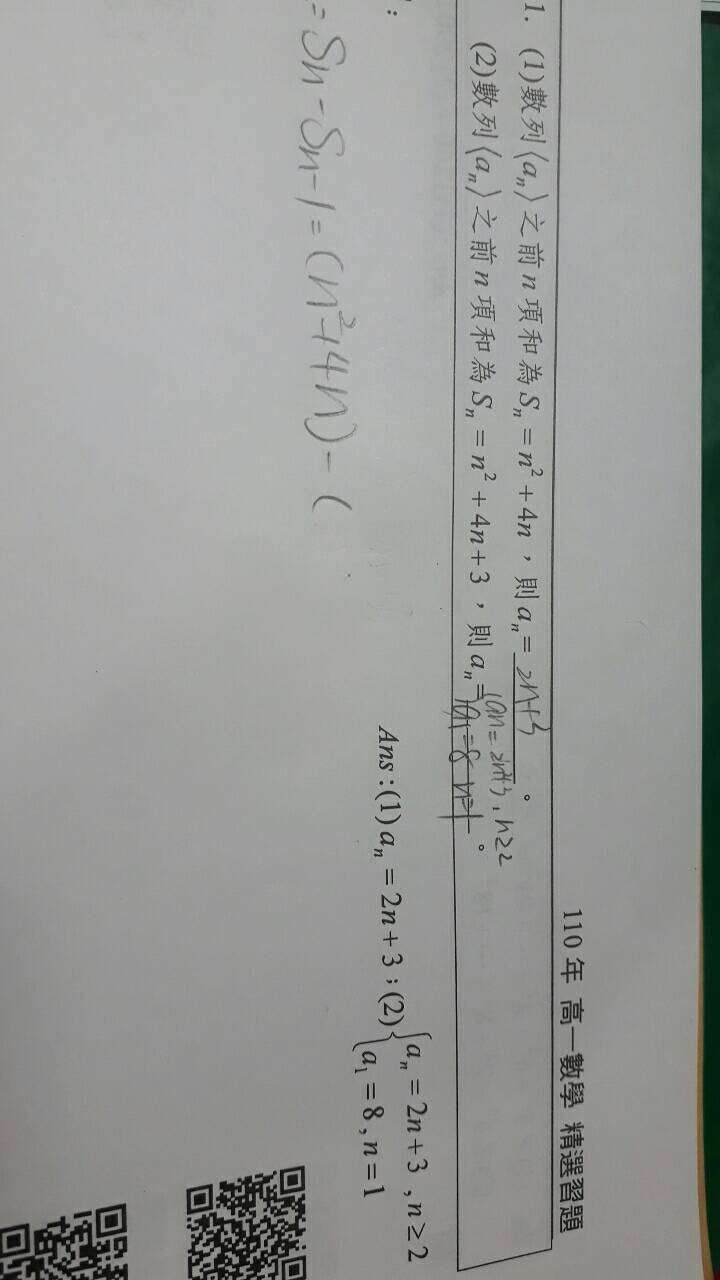 110年 高一數學 精選習題
1. (1)數列⟨aₙ⟩之前n項和為Sₙ = n² + 4n，則aₙ = 2n+3。
(2)數列⟨aₙ⟩之前n項和為Sₙ = n² + 4n + 3，則aₙ = { an = 2n+3, n≥2
a₁ = 8 n=1 。
Ans : (1) aₙ = 2n + 3 ; (2) { aₙ = 2n + 3 , n ≥ 2
a₁ = 8 , n = 1
:
= Sn - Sn-1 = (n²+4n) - (